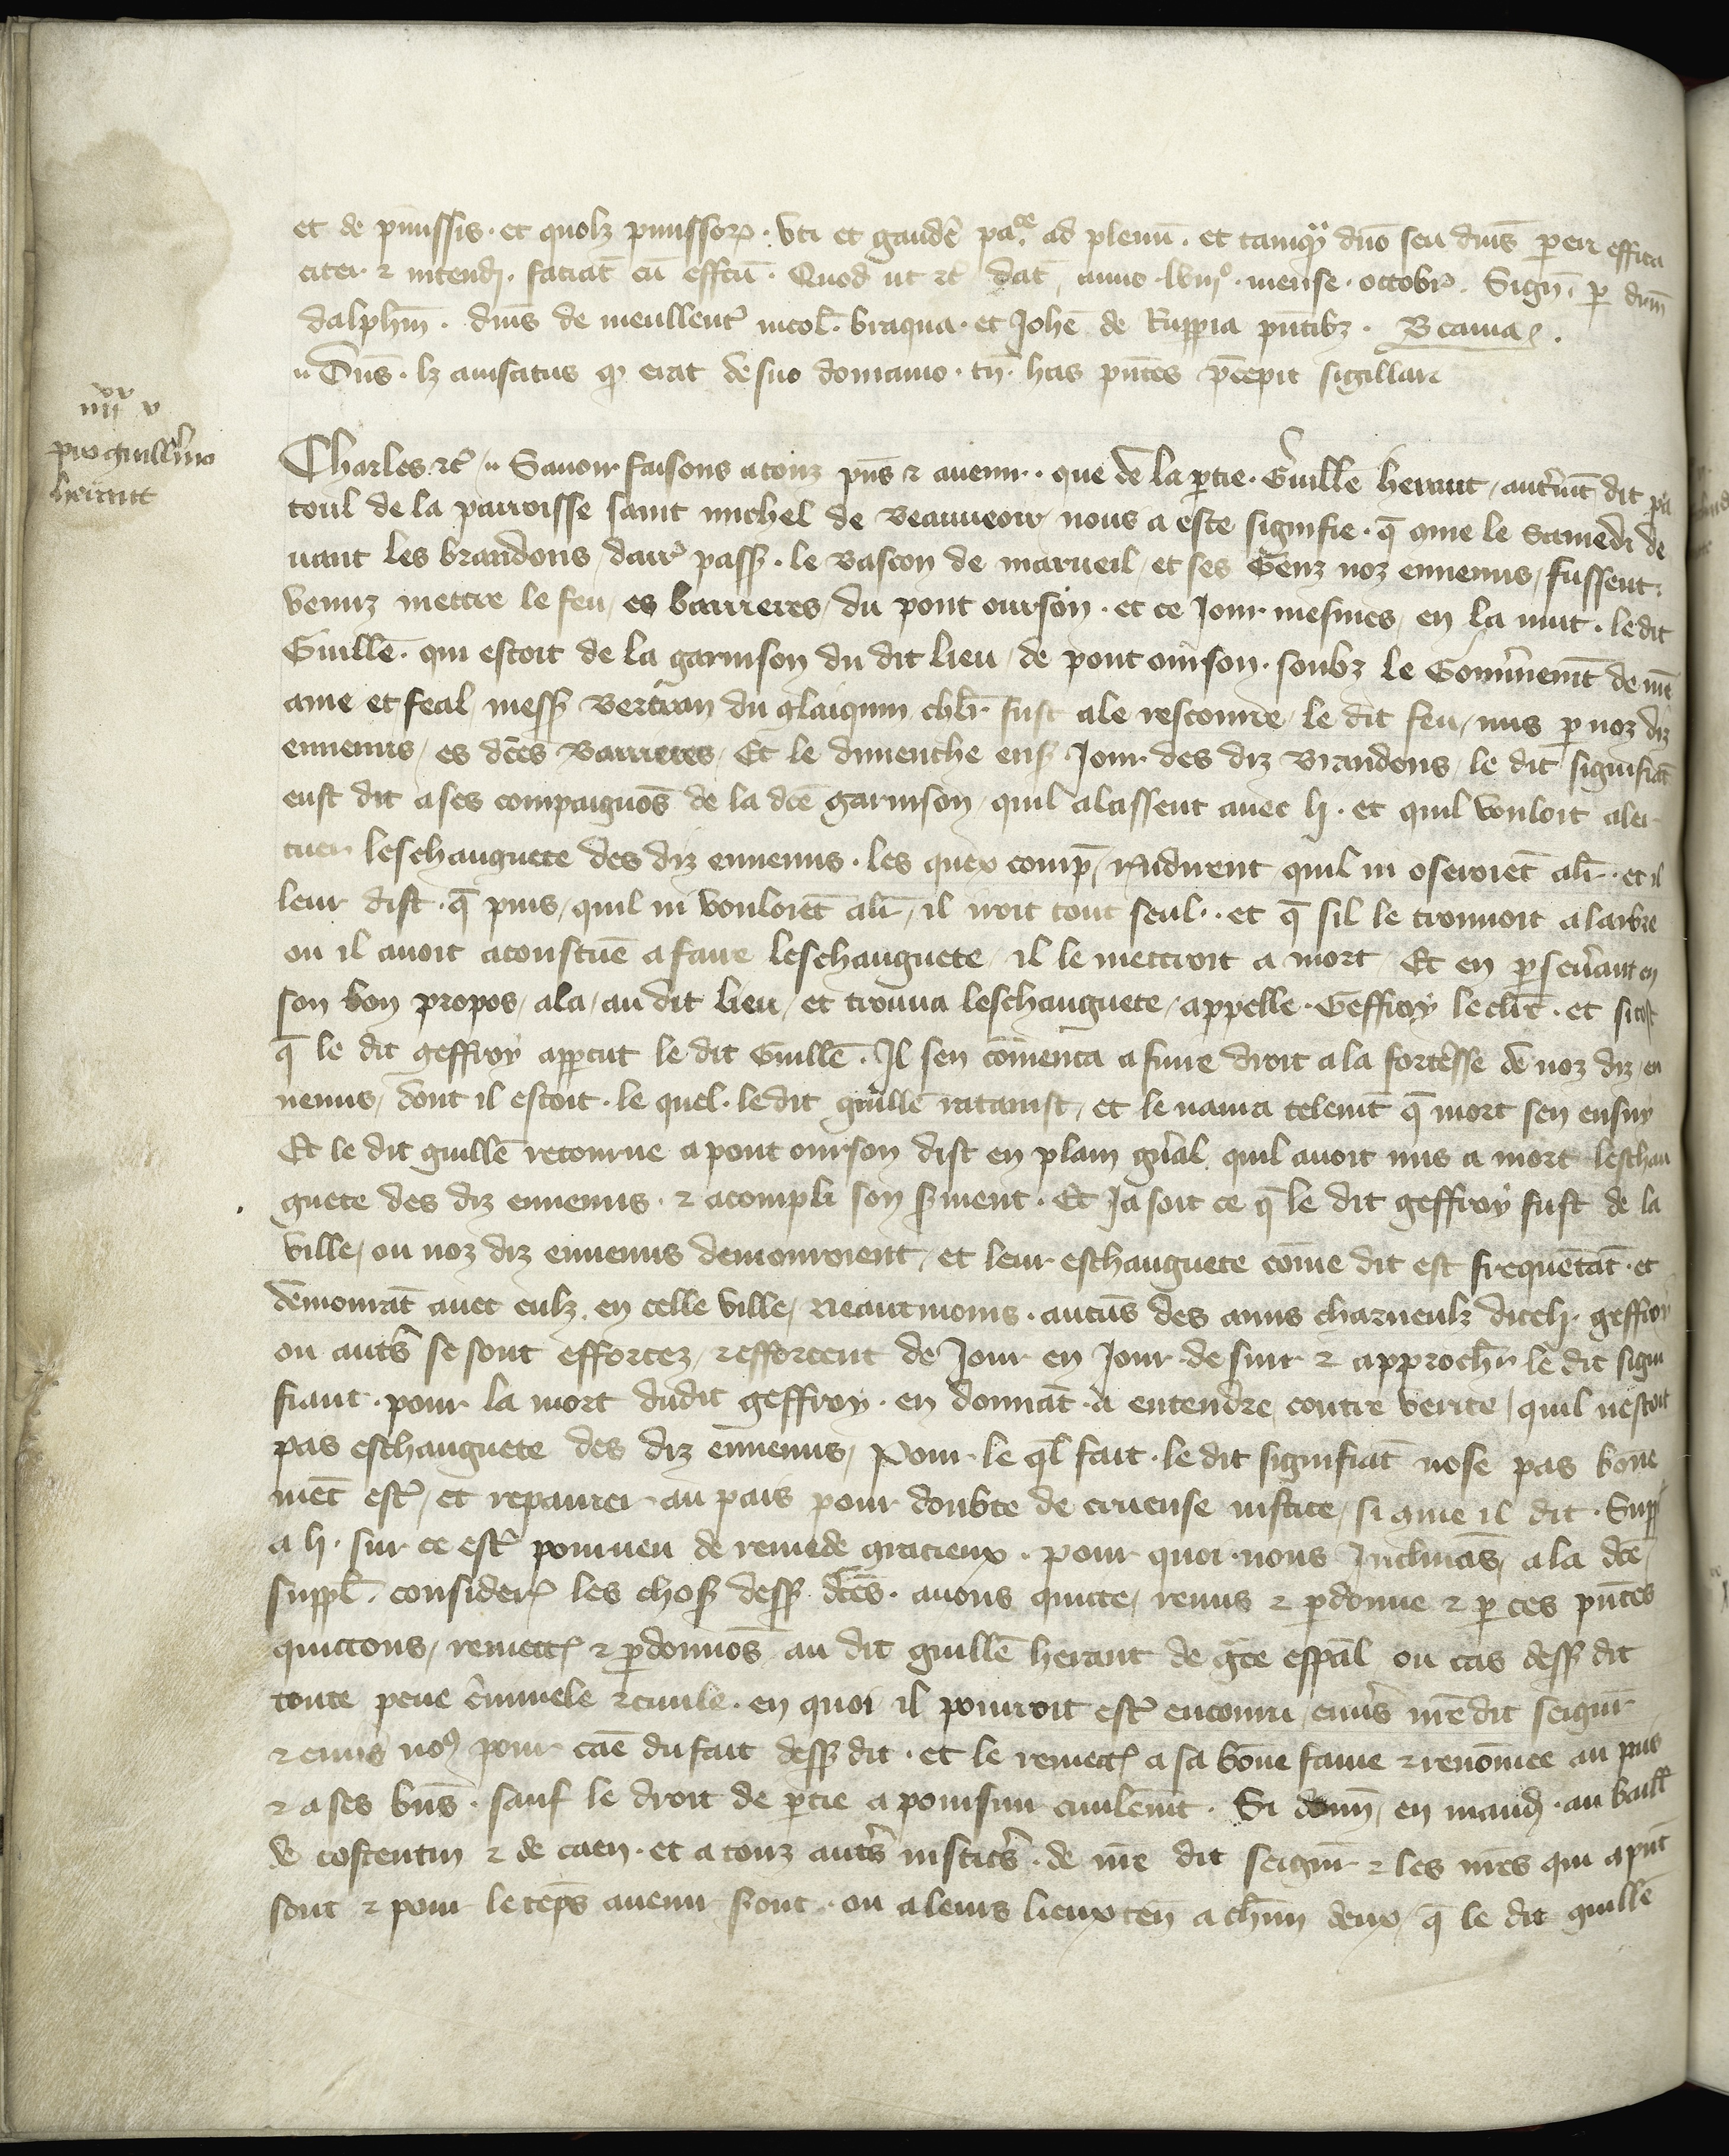 et de p̄missis · et quolz p̄missor · vti et gaudēr ad plenū · et tamq̃ dn̄o seu dn̄is pareri effica
citer ⁊ intendi · faciat cū effctū · Quod ut ⁊c̄ dat̄ anno · lviijº · mense · octobr̄ · Sign̄ · p dn̄m
dalph̄m · dn̄is de meullent̄ nicol̄ · braque · et Joh̄e de Ruppia pn̄tibz ·
Dn̄s · lz auisatus q̄ erat de suo domanio · tn̄ · has pn̄tes p̄cepit sigillari
iiij xx v
pro guillmo
heraut
Charles ⁊c̄ Sauoir faisons a touz pn̄s ⁊ auenir · que de la ptie · Guillē heraut / autrm̄t dit pa
toul de la parroisse saint michel de Beauueoir nous a este signifie · q̄ cm̄e le samedi de
uant les brandons / darr̄ pass̄ · le bascon de marueil / et ses Genz noz ennemis / fussent
venuz mettre le feu / es barreres / du pont ourson · et ce Jour mesmes / en la nuit · le dit
Guillē · qui estoit de la garnison du dit lieu / de pont ourson · soubz le Gouūnemt̄ de nr̄e
ame et feal / mess̄ Bertran du glaiquin chlr̄ fust ale rescourre / le dit feu / mis p noz diz
ennemis / es dc̄es Barreres / Et le dimenche ens̄ · Jour des diz Brandons / le dit signifiāt
eust dit a ses compaignōs de la dc̄e garnison / quil alassent auec li · et quil vouloit aler
tuer leschauguete des diz ennemis · les quex comp̄ / rn̄direnent quil ni oseroiēt alr̄ · et il
leur dist · q̄ puis / quil ni vouloiēt alr̄ / il iroit tout seul · et q̄ sil le trouuoit a larbre
ou il auoit acoustūe a faire leschauguete / il le mettroit a mort / Et en pseūant en
son bon propos / ala / au dit lieu / et trouua leschauguete / appelle · Geffroy le clrc̄ · et si tost
q̄ le dit geffroy appcut le dit Guillē · Il sen cōmenca a fuire droit a la fort̄esse de noz diz / en
nemis / dont il estoit · le quel · le dit guillē rataint / et le naura telemt̄ q̄ mort sen ensuy
Et le dit guillē retourne a pont ourson dist en plain gn̄al quil auoit mis a mort leschau
guete des diz ennemis · ⁊ acompli son s̄ment · Et Ja soit ce q̄ le dit geffroy fust de la
ville / ou noz diz ennemis demouroient / et leur eschauguete cōme dit est frequētāt · et
demourāt auec eulz en celle ville / Neantmoins · aucūs des amis charneulz diceli · geffroy
ou aut̄s se sont efforcez / ⁊ efforcent de Jour en Jour de suir ⁊ approch̄r le dit signi
fiant · pour la mort du dit geffroy · en donnāt · a entendre contre verite / quil nestoit
pas eschauguete des diz ennemis / Pour le q̄l fait · le dit signifiāt nose pas bōne
mēt est̄ / et repairer au pais pour doubte de crueuse iustice / si cm̄e il dit · Supp̄
a li · sur ce est̄ pourueu de remede gracieux · pour quoi · nous Inclināns / a la dc̄e
suppl̄ · consider̄ les chos̄ dess̄ dc̄es · auons quicte / remis ⁊ pdonne ⁊ p ces pn̄tes
quictons / remett̄ ⁊ pdonnōs au dit guillē heraut de gc̄e esp̄al ou cas dess̄ dit
toute peine c̄minele ⁊ ciuile · en quoi il pourroit est̄ encouru / enūs nr̄e dit seign̄r
⁊ enūs noꝰ pour cāe du fait dess̄ dit · et le remett̄ a sa bōne fame ⁊ renōmee au pais
⁊ a ses bn̄s · sauf le droit de ptie a poursuir ciuilemt̄ · Si donn̄ / en mand̄ · au baill̄
de costentin ⁊ de caen · et a touz aut̄s iustic̄s · de nr̄e dit seign̄r ⁊ les nr̄es qui a pn̄t
sont ⁊ pour le tēps auenir s̄ont · ou a leurs lieux ten̄ a ch̄un deux / q̄ le dit guillē